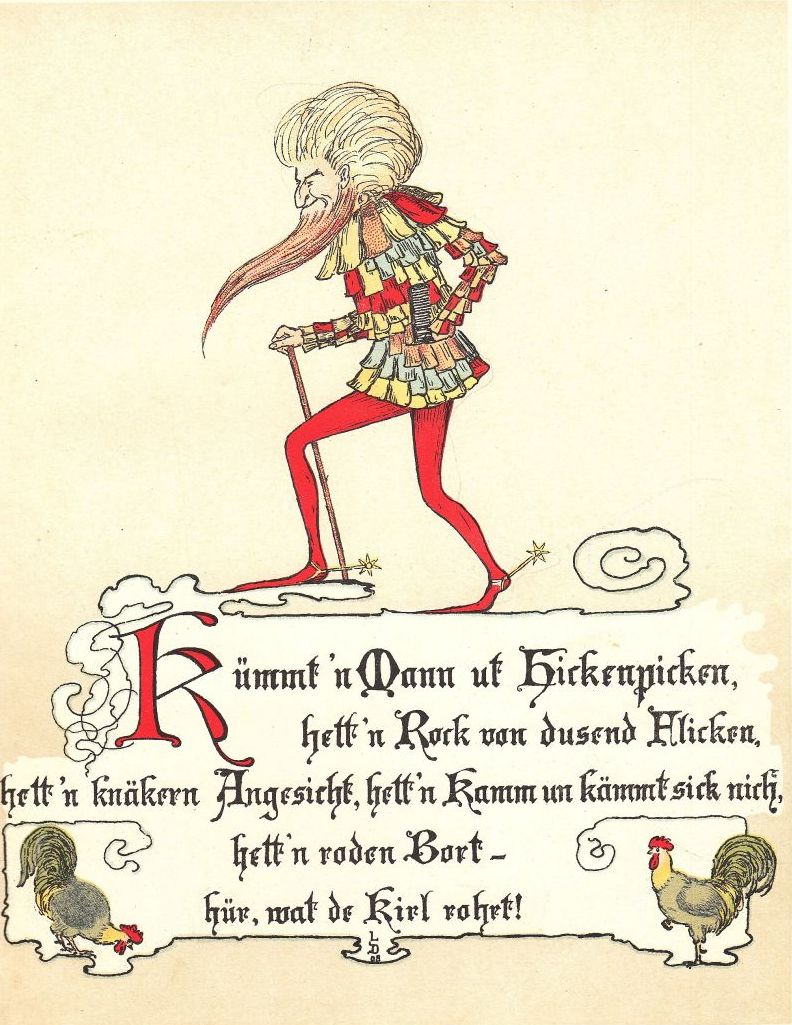 Kümmt 'n Mann ut Hickenpicken,
hett 'n Rock von dusend Flicken,
hett 'n knäkern Angesicht, hett 'n Kamm un kämmt sick nich,
hett 'n roden Bort -
hür, wat de Kirl rohrt!
LD
08